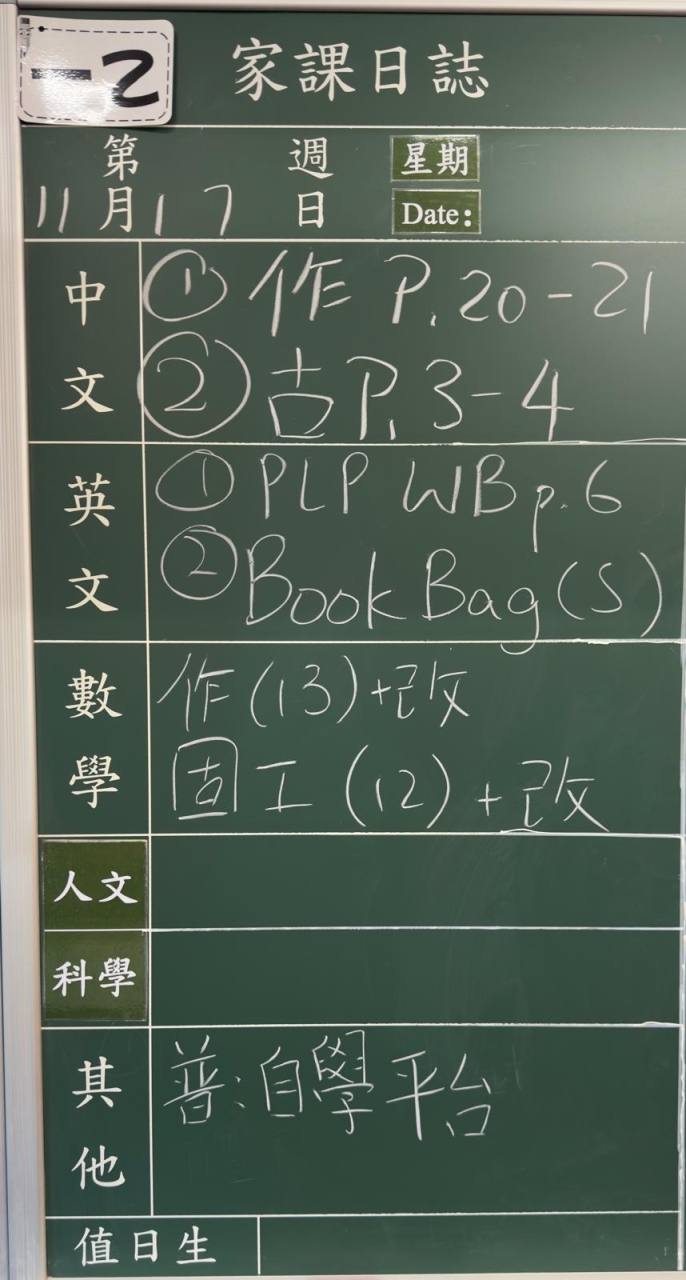 一2
家課日誌
第 週 星期
11月17日 Date:
中文
① 作 P.20-21
② 古P.3-4
英文
① PLP WB p.6
② Book Bag(S)
數學
作(13)+改
固工(12)+改
人文
科學
其他
普:自學平台
值日生